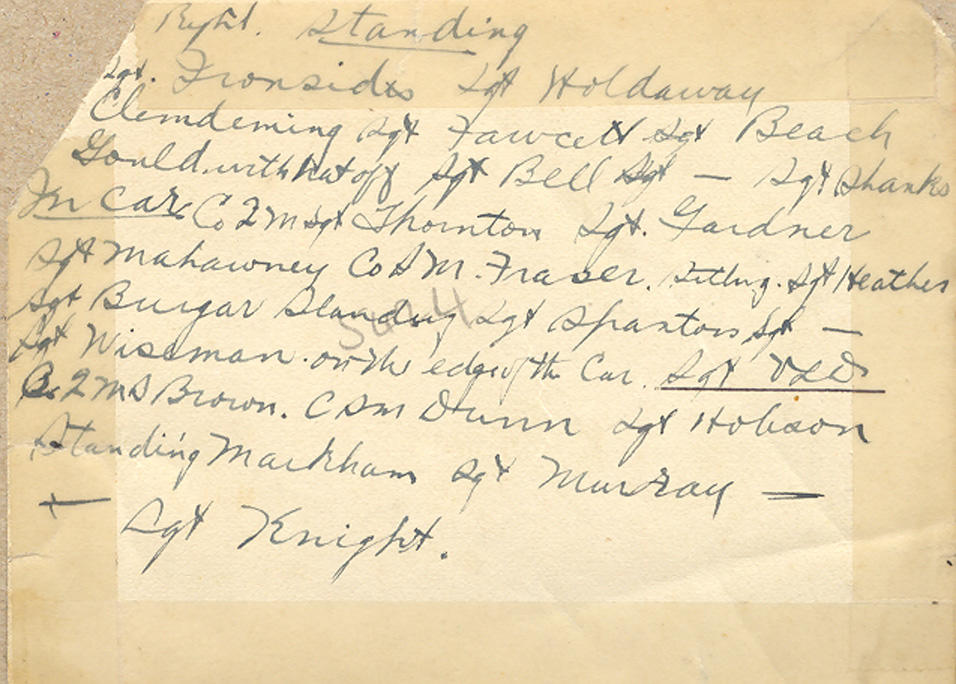 Right. Standing
Sgt. Ironsides Sgt Holdaway
Clemdeming Sgt Fawcett Sgt Beach
Gould. with hat off Sgt Bell Sgt — Sgt Shanks
In Car Co 2 M Sgt Thornton Sgt. Gardner
Sgt Mahawney Co S M. Fraser. Sitting. Sgt Heather
Sgt Burgar Standing Sgt Spanton Sgt —
Sgt Wiseman. on the edge of the Car. Sgt
2 M S Brown. C S M Dunn Sgt Hobson
Standing Markham Sgt Murray —
Sgt Knight.